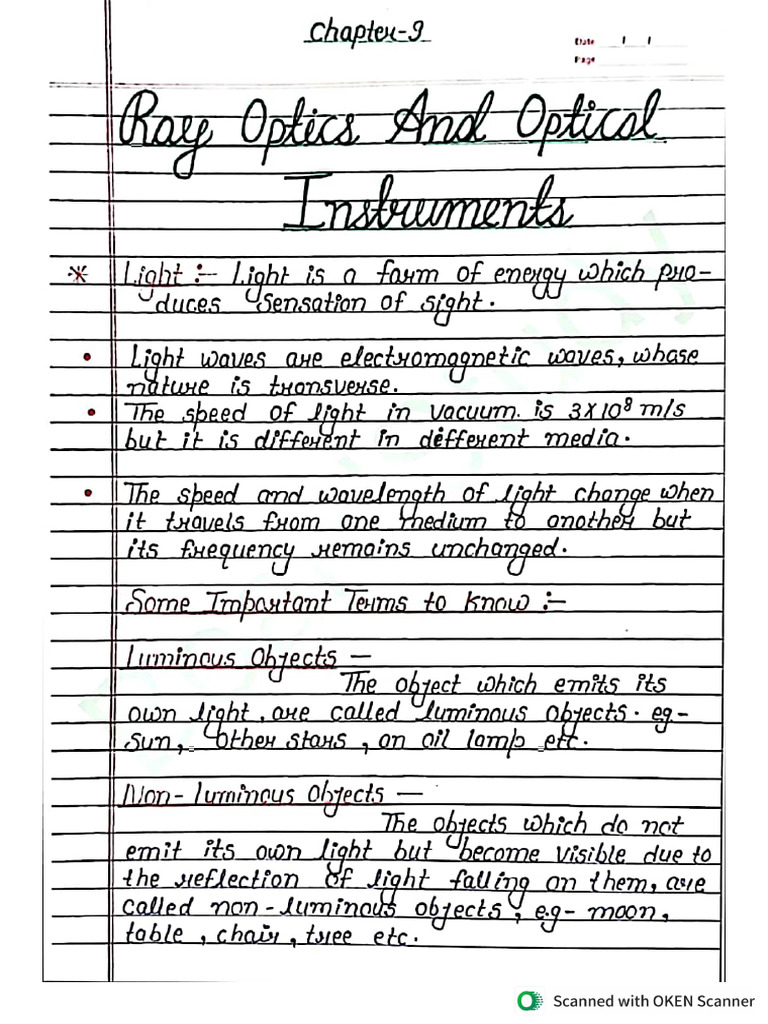 Chapter-9
Date / /
Page
Ray Optics And Optical
Instruments
* Light :- Light is a form of energy which pro-
duces sensation of sight.
• Light waves are electromagnetic waves, whose
nature is transverse.
• The speed of light in vacuum. is 3X10⁸ m/s
but it is different in different media.
• The speed and wavelength of light change when
it travels from one medium to another but
its frequency remains unchanged.
Some Important Terms to know :-
Luminous Objects —
The object which emits its
own light, are called luminous objects. eg-
sun, other stars, an oil lamp etc.
Non-luminous Objects —
The objects which do not
emit its own light but become visible due to
the reflection of light falling on them, are
called non-luminous objects, e.g- moon,
table, chair, tree etc.
Scanned with OKEN Scanner